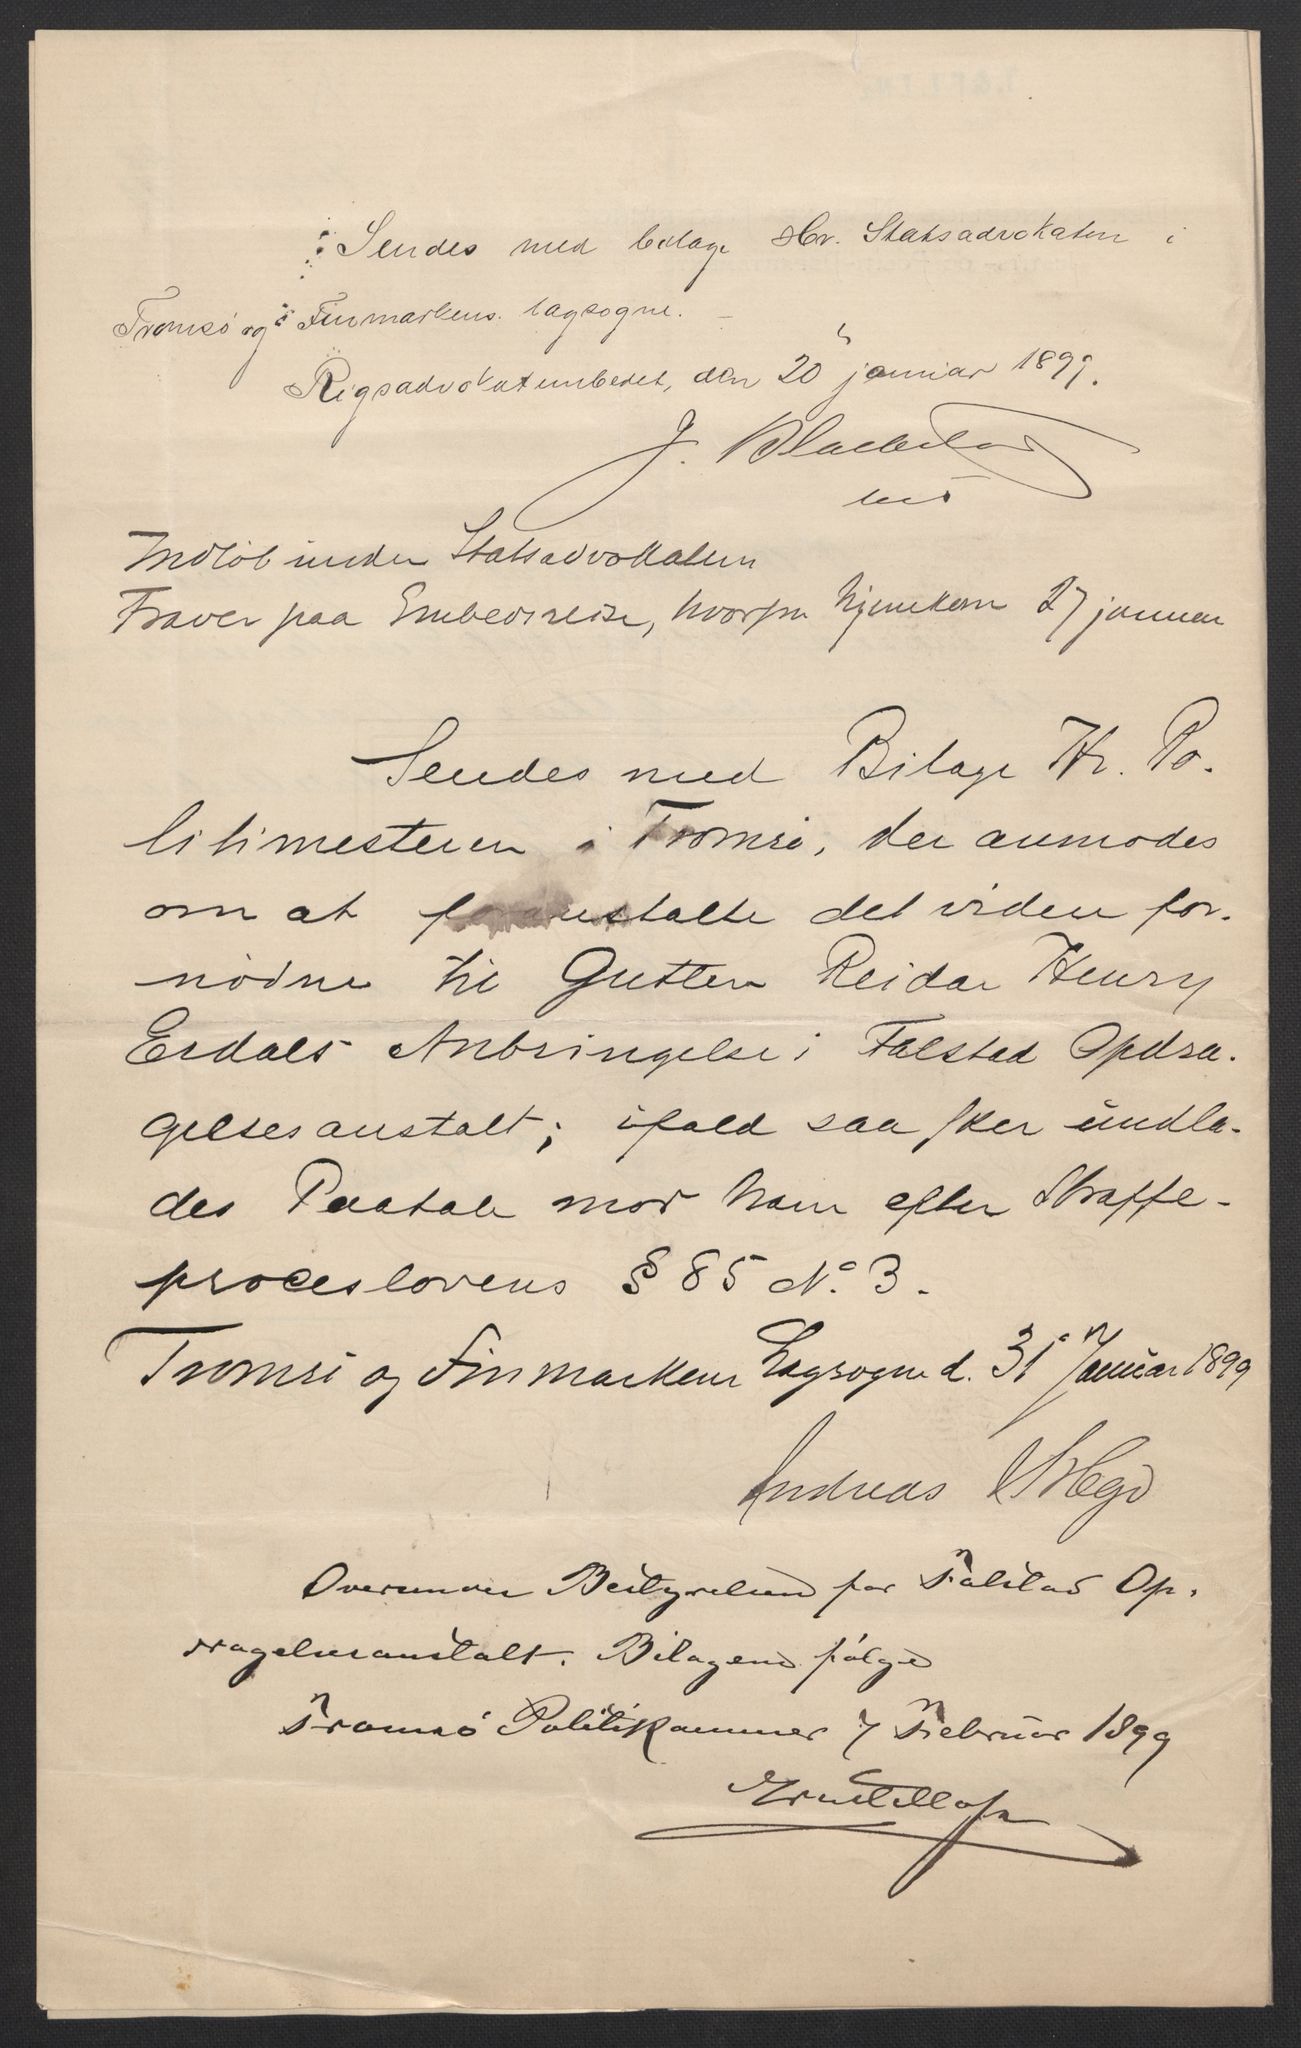 Sendes med bilage Hr. Statsadvokaten i
Tromsø og Finmarkens lagsogne.
Rigsadvokatembedet, den 20 januar 1899.
J.
Indløb under Statsadvokatens
Fravær paa Embedsreise, hvorfra hjemkom 27 januar
Sendes med Bilage Hr. Po-
litimesteren i Tromsø, der anmodes
om at foranstalte det videre for-
nødne til Gutten Reidar Henry
Erdals Anbringelse i Falstad Opdra-
gelsesanstalt; ifald saa sker undla-
des Paatale mod ham efter Straffe-
proceslovens § 85 No. 3.
Tromsø og Finmarkens Lagsogne d. 31 Januar 1899
Andreas
Oversendes Bestyrelsen for Falstad Op-
dragelsesanstalt. Bilagene følge
Tromsø Politikammer 7 Februar 1899